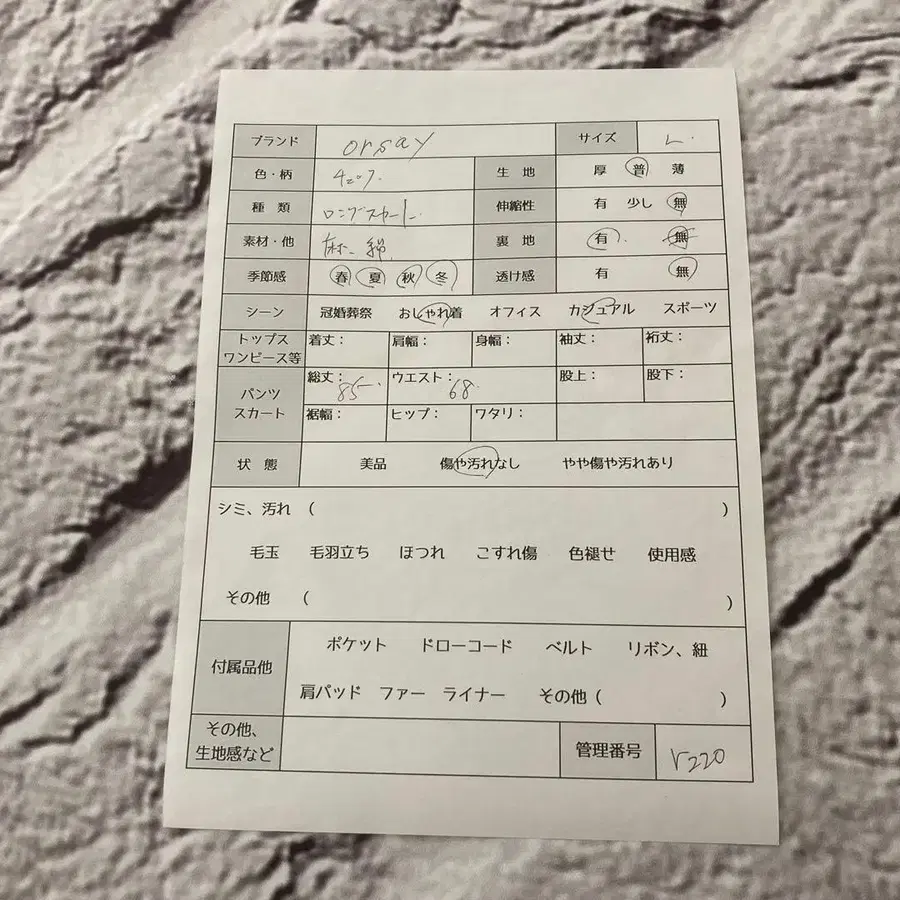 ブランド orsay サイズ L
色・柄 生 地 厚 普 薄
種 類 ロングスカート 伸縮性 有 少し 無
素材・他 麻、綿 裏 地 有 無
季節感 春 夏 秋 冬 透け感 有 無
シーン 冠婚葬祭 おしゃれ着 オフィス カジュアル スポーツ
トップス
ワンピース等 着丈： 肩幅： 身幅： 袖丈： 裄丈：
パンツ
スカート 総丈：85 ウエスト：68 股上： 股下：
裾幅： ヒップ： ワタリ：
状 態 美品 傷や汚れなし やや傷や汚れあり
シミ、汚れ （ ）
毛玉 毛羽立ち ほつれ こすれ傷 色褪せ 使用感
その他 （ ）
付属品他 ポケット ドローコード ベルト リボン、紐
肩パッド ファー ライナー その他（ ）
その他、
生地感など 管理番号 r220